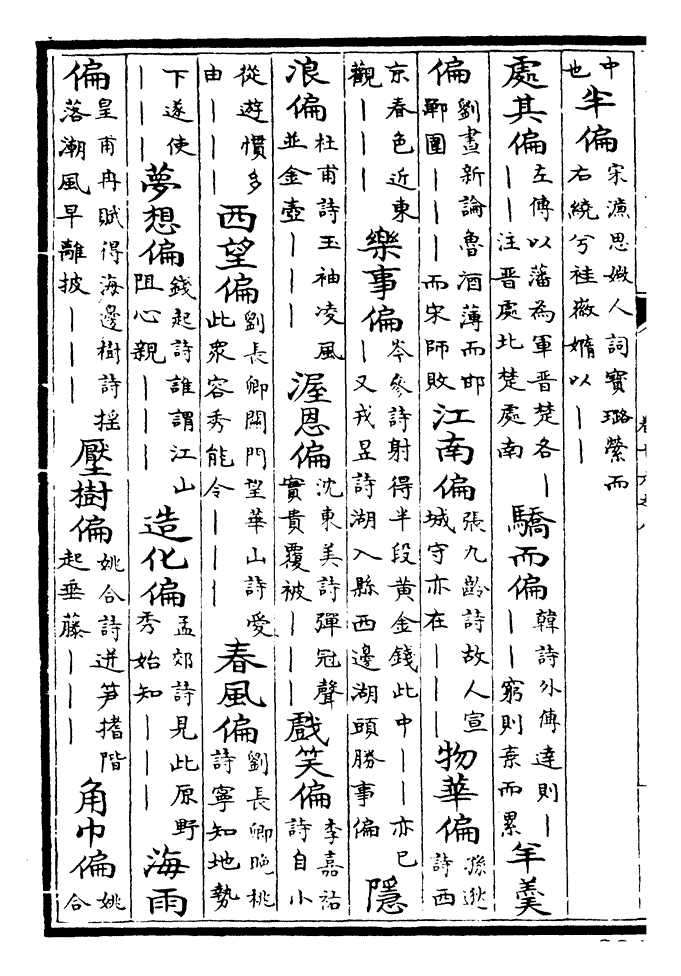 中也半偏宋濂思媺人詞寶璐縈而右繞兮袿㣲媠以丨丨
處其偏左傳以藩為軍晉楚各丨丨丨注晉處北楚處南驕而偏韓詩外傳達則丨丨丨窮則棄而累羊羹
偏劉晝新論魯酒薄而邯鄲圍丨丨丨而宋師敗江南偏張九齡詩故人宣城守亦在丨丨丨物華偏孫逖詩西
京春色近東觀丨丨丨樂事偏岑參詩射得半段黃金錢此中丨丨亦已丨又戎昱詩湖入縣西邊湖頭勝事偏隱
浪偏杜甫詩玉袖凌風並金壺丨丨丨渥恩偏沈東美詩彈冠聲實貴覆被丨丨丨戲笑偏李嘉祐詩自小
從遊慣多由丨丨丨西望偏劉長卿關門望華山詩愛此衆容秀能令丨丨丨春風偏劉長卿晚桃詩寧知地勢
下遂使丨丨丨夢想偏錢起詩誰謂江山阻心親丨丨丨造化偏孟郊詩見此原野秀始知丨丨丨海雨
偏皇甫冉賦得海邊樹詩摇落潮風早離披丨丨丨壓樹偏姚合詩迸笋揩階起垂藤丨丨丨角巾偏姚合